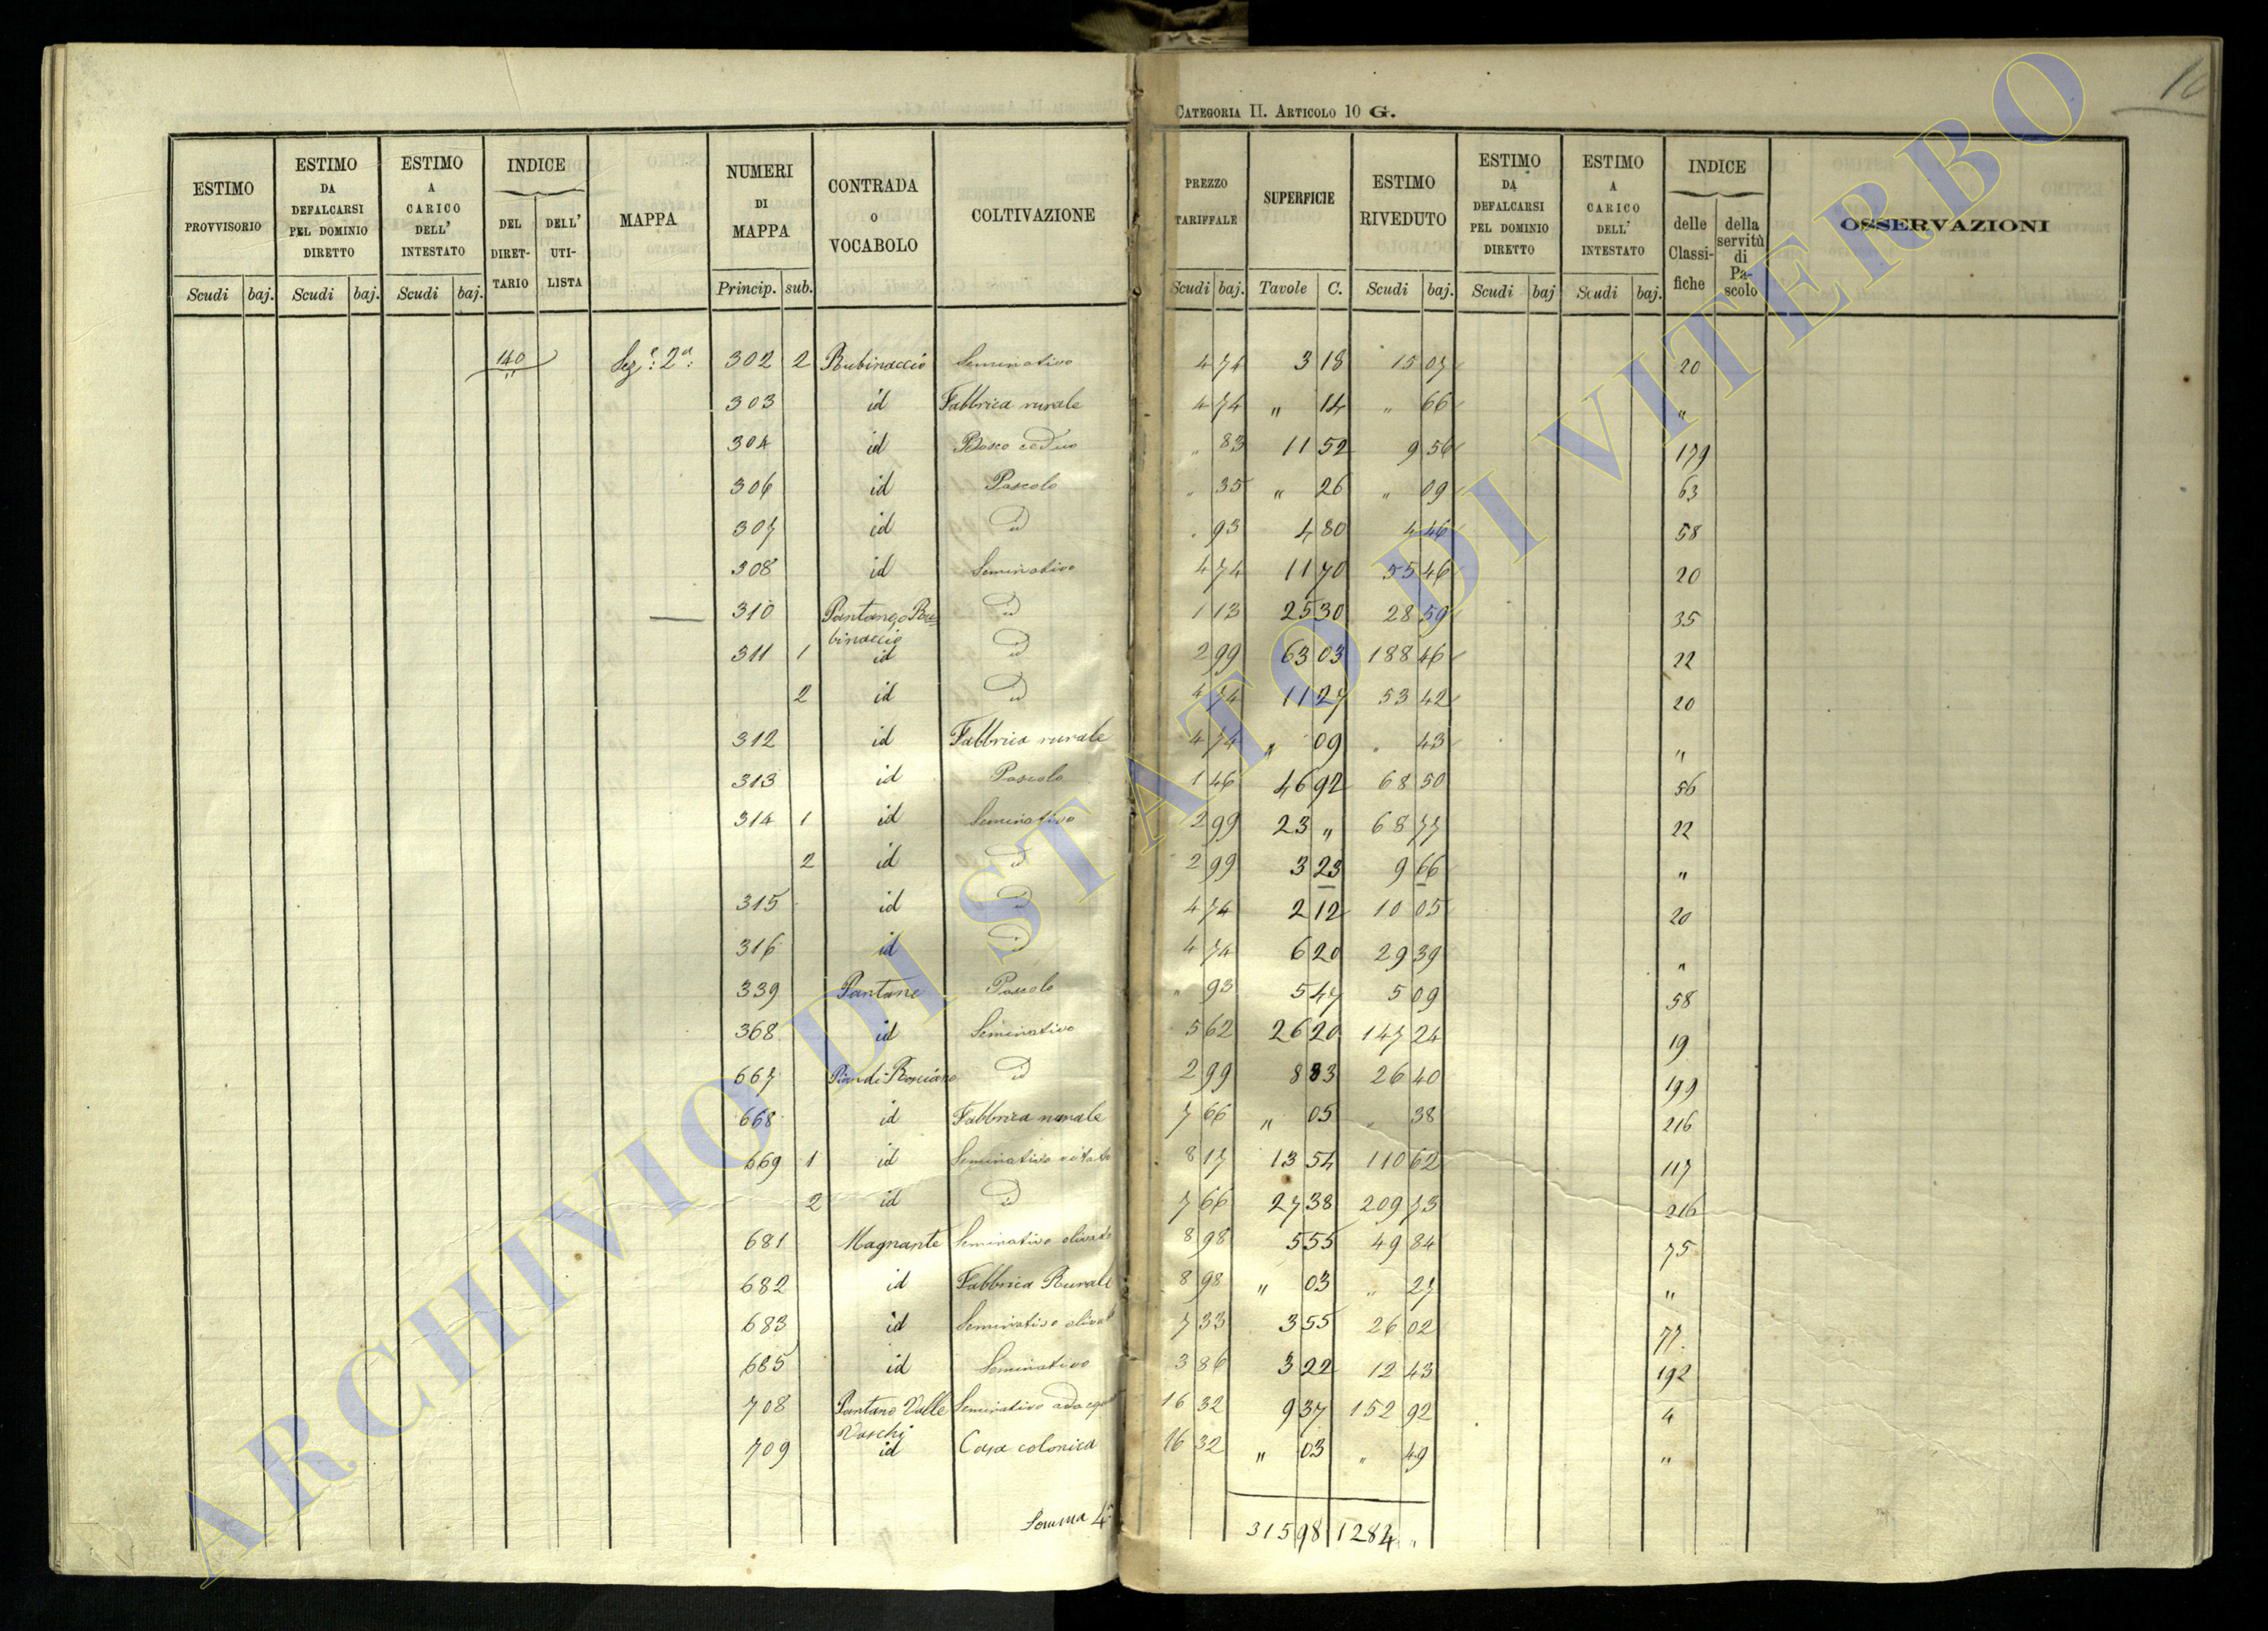 16
CATEGORIA II. ARTICOLO 10 G.
ESTIMO PROVVISORIO | ESTIMO DA DEFALCARSI PEL DOMINIO DIRETTO | ESTIMO A CARICO DELL' INTESTATO | INDICE DEL DIRETTARIO | DELL' UTILISTA | MAPPA | NUMERI DI MAPPA | CONTRADA O VOCABOLO | COLTIVAZIONE | PREZZO TARIFFALE | SUPERFICIE | ESTIMO RIVEDUTO | ESTIMO DA DEFALCARSI PEL DOMINIO DIRETTO | ESTIMO A CARICO DELL' INTESTATO | INDICE delle Classifiche | della servitù di Pascolo | OSSERVAZIONI
Scudi baj. Scudi baj. Scudi baj. Princip. sub. Scudi baj. Tavole C. Scudi baj. Scudi baj Scudi baj.
140 Sez.e 2a: 302 2 Rubinaccio Seminativo 4 74 3 18 15 07 20
303 id Fabbrica rurale 4 74 " 14 " 66 "
304 id Bosco ceduo " 83 11 52 9 56 179
306 id Pascolo " 35 " 26 " 09 63
307 id id " 93 4 80 4 46 58
308 id Seminativo 4 74 11 70 55 46 20
310 Pantano, Rubinaccio id 1 13 25 30 28 59 35
311 1 id id 2 99 63 03 188 46 22
2 id id 4 74 11 27 53 42 20
312 id Fabbrica rurale 4 74 " 09 " 43 "
313 id Pascolo 1 46 46 92 68 50 56
314 1 id Seminativo 2 99 23 " 68 77 22
2 id id 2 99 3 23 9 66 "
315 id id 4 74 2 12 10 05 20
316 id id 4 74 6 20 29 39 "
339 Pantane Pascolo " 93 5 47 5 09 58
368 id Seminativo 5 62 26 20 147 24 19
667 id 2 99 8 83 26 40 199
668 id Fabbrica rurale 7 66 " 05 " 38 216
669 1 id Seminativo vitato 8 17 13 54 110 62 117
2 id id 7 66 27 38 209 73 216
681 Magnante Seminativo olivato 8 98 5 55 49 84 75
682 id Fabbrica Rurale 8 98 " 03 " 27 "
683 id Seminativo olivato 7 33 3 55 26 02 77
685 id Seminativo 3 86 3 22 12 43 192
708 Pantano Valle Vaschi Seminativo 16 32 9 37 152 92 4
709 id Casa colonica 16 32 " 03 " 49 "
Somma 4a 315 98 1284 "
ARCHIVIO DI STATO DI VITERBO